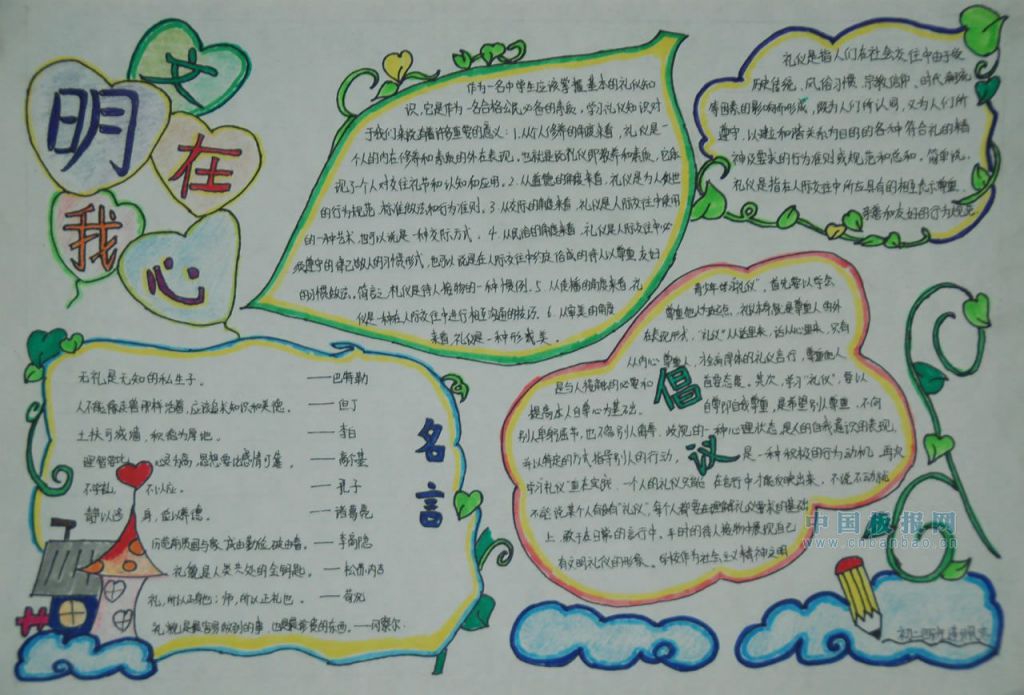 文明在我心
作为一名中学生应该掌握基本的礼仪知
识,它是作为一名合格公民必备的素质,学习礼仪知识对
于我们来说有着许多重要的意义:1.从个人修养的角度来看,礼仪是一
个人的内在修养和素质的外在表现,也就是说礼仪即教养和素质,它体
现了个人对交往礼节和认知和应用。2.从道德的角度来看,礼仪是为人处世
的行为规范,标准做法和行为准则。3.从交际的角度来看,礼仪是人际交往中使用
的一种艺术,也可以说是一种交际方式。4.从民俗的角度来看,礼仪是人际交往中必
须遵守的律己敬人的习惯形式,也可以说是在人际交往中约定俗成的待人以尊重,友好
的习惯做法,简言之,礼仪是待人接物的一种惯例。5.从传播的角度来看,礼
仪是一种在人际交往中进行相互沟通的技巧。6.从审美的角度
来看,礼仪是一种形式美。
礼仪是指人们在社会交往中由于受
历史传统、风俗习惯、宗教信仰、时代潮流
等因素的影响而形成,既为人们所认同,又为人们所
遵守,以建立和谐关系为目的的各种符合礼的精
神及要求的行为准则或规范和总和。简单说,
礼仪是指在人际交往中所应具有的相互表示尊重、
亲善和友好的行为规范
名言
无礼是无知的私生子。——巴特勒
人不能像走兽那样活着,应该追求知识和美德。——但丁
土扶可成墙,积德为厚地。——李白
——高尔基
不学礼, 不以立。——孔子
静以修身,俭以养德。——诸葛亮
历览前贤国与家,成由勤俭,破由奢。——李商隐
礼貌是人类共处的金钥匙。——松苏内吉
礼,所以正身也;师,所以正礼也。——荀况
礼貌是最容易做到的事,也是最珍贵的东西。——冈察尔
倡议
青少年学习“礼仪”,首先要以学会
尊重他人为起点,礼仪本身就是尊重人的外
在表现形式,“礼仪”从话里来,话从心里来,只有
从内心尊重人,才会有得体的礼仪言行,尊重他人
是与人接触的必要和首要态度。其次,学习“礼仪”,要以
提高本人自尊心为基础。自尊即自我尊重,是希望别人尊重,不向
别人卑躬屈节,也不容别人侮辱、歧视的一种心理状态,是人的自我意识的表现,
并以特定的方式指导别人的行动,是一种积极的行为动机。再次
学习礼仪”重在实践,一个人的礼仪只能在言行中才能反映出来,不说不动就
不能说某个人有“礼仪”,每个人都要在理解礼仪要求的基础
上,敢于在日常的言行中,平时的待人接物中展现自己
有文明礼仪的形象。学校作为社会主义精神文明
初一四班
中国板报网
www.chbanbao.cn